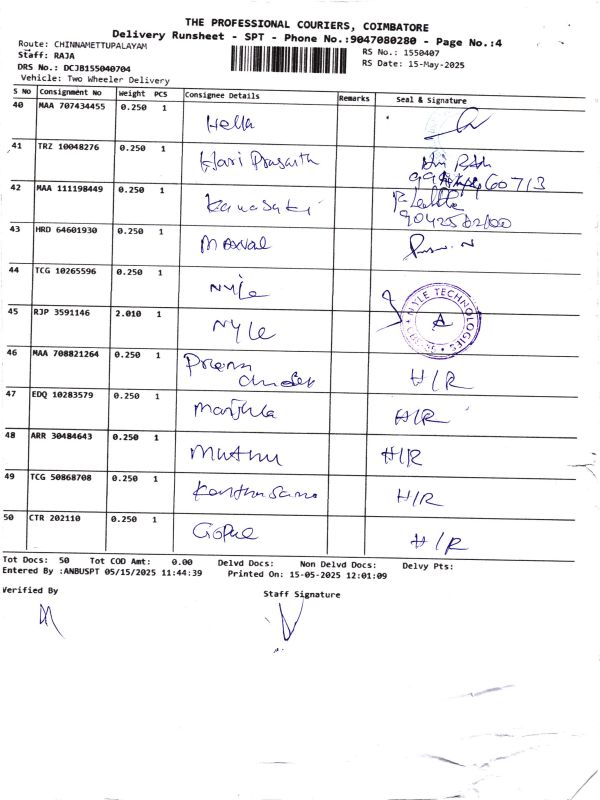 THE PROFESSIONAL COURIERS, COIMBATORE
Delivery Runsheet - SPT - Phone No.:9047080280 - Page No.:4
Route: CHINNAMETTUPALAYAM
Staff: RAJA
DRS No.: DCJB155040704
Vehicle: Two Wheeler Delivery
RS No.: 1550407
RS Date: 15-May-2025
S No Consignment No Weight PCS Consignee Details Remarks Seal & Signature
40 MAA 707434455 0.250 1 Hella
41 TRZ 10048276 0.250 1 Hari Prasanth
42 MAA 111198449 0.250 1
43 HRD 64601930 0.250 1
44 TCG 10265596 0.250 1 NYLe
45 RJP 3591146 2.010 1 NYLe NYLE TECHNOLOGIES
46 MAA 708821264 0.250 1 H/R
47 EDQ 10283579 0.250 1 Manjula H/R
48 ARR 30484643 0.250 1 Muthu H/R
49 TCG 50868708 0.250 1 H/R
50 CTR 202110 0.250 1 Gopal H/R
Tot Docs: 50 Tot COD Amt: 0.00 Delvd Docs: Non Delvd Docs: Delvy Pts:
Entered By :ANBUSPT 05/15/2025 11:44:39 Printed On: 15-05-2025 12:01:09
Verified By Staff Signature